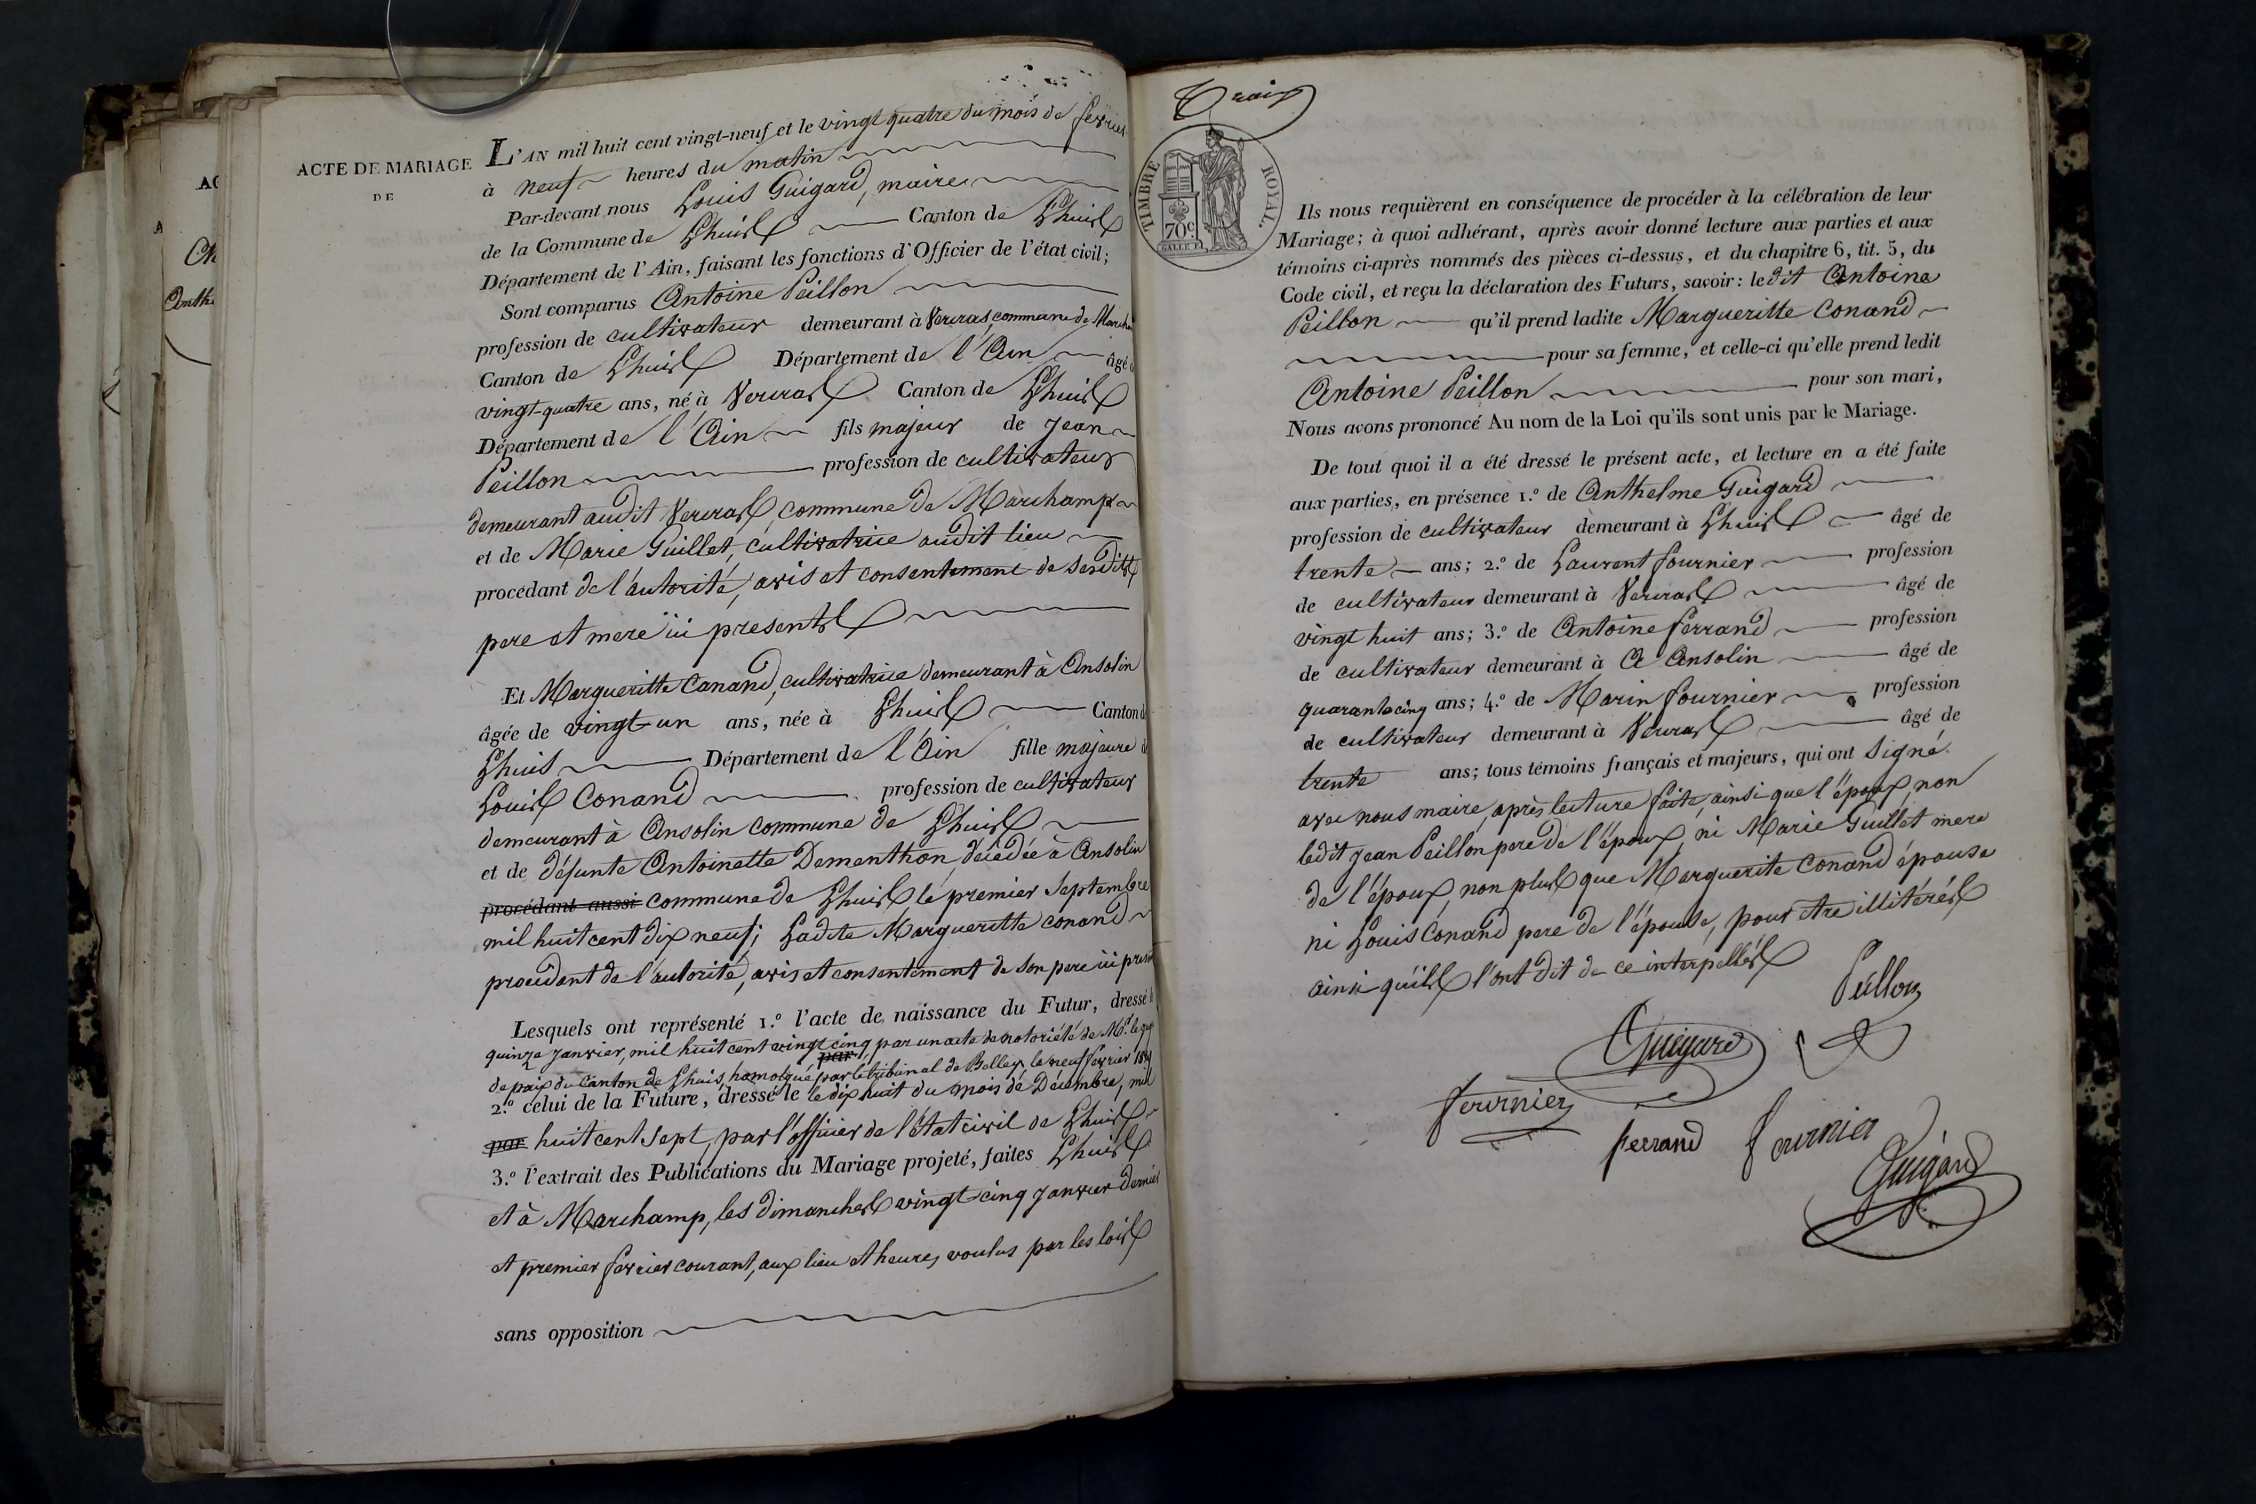 ACTE DE MARIAGE
DE
L'AN mil huit cent vingt-neuf et le vingt quatre du mois de fevrier
à neuf heures du matin
Par-devant nous Louis Guigard, maire
de la Commune de Lhuis Canton de Lhuis
Département de l'Ain, faisant les fonctions d'Officier de l'état civil;
Sont comparus Antoine Peillon
profession de cultivateur demeurant à Vercras, commune de
Canton de Lhuis Département de l'Ain âgé
vingt-quatre ans, né à Vercras Canton de Lhuis
Département de l'Ain fils majeur de Jean
Peillon profession de cultivateur
demeurant audit Vercras, commune de Marchamp
et de Marie Guillet, cultivatrice audit lieu
procédant de l'autorité, avis et consentement de sesdits
pere et mere ici presents
Et Margueritte Conand, cultivatrice demeurant à Ansolin
âgée de vingt-un ans, née à Lhuis Canton
Lhuis Département de l'Ain fille majeure
Louis Conand profession de cultivateur
demeurant à Ansolin commune de Lhuis
et de défunte Antoinette Dementhon, décédée à Ansolin
procédant aussi commune de Lhuis le premier Septembre
mil huit cent dix neuf; Ladite Margueritte conand
procédant de l'autorité, avis et consentement de son pere ici
Lesquels ont représenté 1.º l'acte de naissance du Futur, dressé
quinze janvier, mil huit cent vingt cinq, par un acte de notoriété de Mr. le
par
de paix du Canton de Lhuis, homologué par le tribunal de Belley, le neuf fevrier
2.º celui de la Future, dressé le le dix huit du mois de Décembre, mil
par huit cent sept, par l'officier de l'état civil de Lhuis
3.º l'extrait des Publications du Mariage projeté, faites Lhuis
et à Marchamp, les dimanches vingt-cinq janvier dernier
et premier fevrier courant, aux lieu et heures voulus par les lois
sans opposition
Trois
TIMBRE ROYAL.
70c
Ils nous requièrent en conséquence de procéder à la célébration de leur
Mariage; à quoi adhérant, après avoir donné lecture aux parties et aux
témoins ci-après nommés des pièces ci-dessus, et du chapitre 6, tit. 5, du
Code civil, et reçu la déclaration des Futurs, savoir: ledit Antoine
Peillon qu'il prend ladite Margueritte Conand
pour sa femme, et celle-ci qu'elle prend ledit
Antoine Peillon pour son mari,
Nous avons prononcé Au nom de la Loi qu'ils sont unis par le Mariage.
De tout quoi il a été dressé le présent acte, et lecture en a été faite
aux parties, en présence 1.º de Anthelme Guigard
profession de cultivateur demeurant à Lhuis âgé de
trente ans; 2.º de Laurent fournier profession
de cultivateur demeurant à Vercras âgé de
vingt huit ans; 3.º de Antoine ferrand profession
de cultivateur demeurant à A Ansolin âgé de
quarante cinq ans; 4.º de Marin fournier profession
de cultivateur demeurant à Vercras âgé de
trente ans; tous témoins français et majeurs, qui ont Signé
avec nous maire, après lecture faite, ainsi que l'époux, non
ledit Jean Peillon pere de l'époux, ni Marie Guillet mere
de l'époux, non plus que Marguerite Conand épouse
ni Louis Conand pere de l'épouse, pour etre illitérés
ainsi qu'ils l'ont dit de ce interpellés
Peillon
Guigard
fournier
ferrand fournier
Guigard